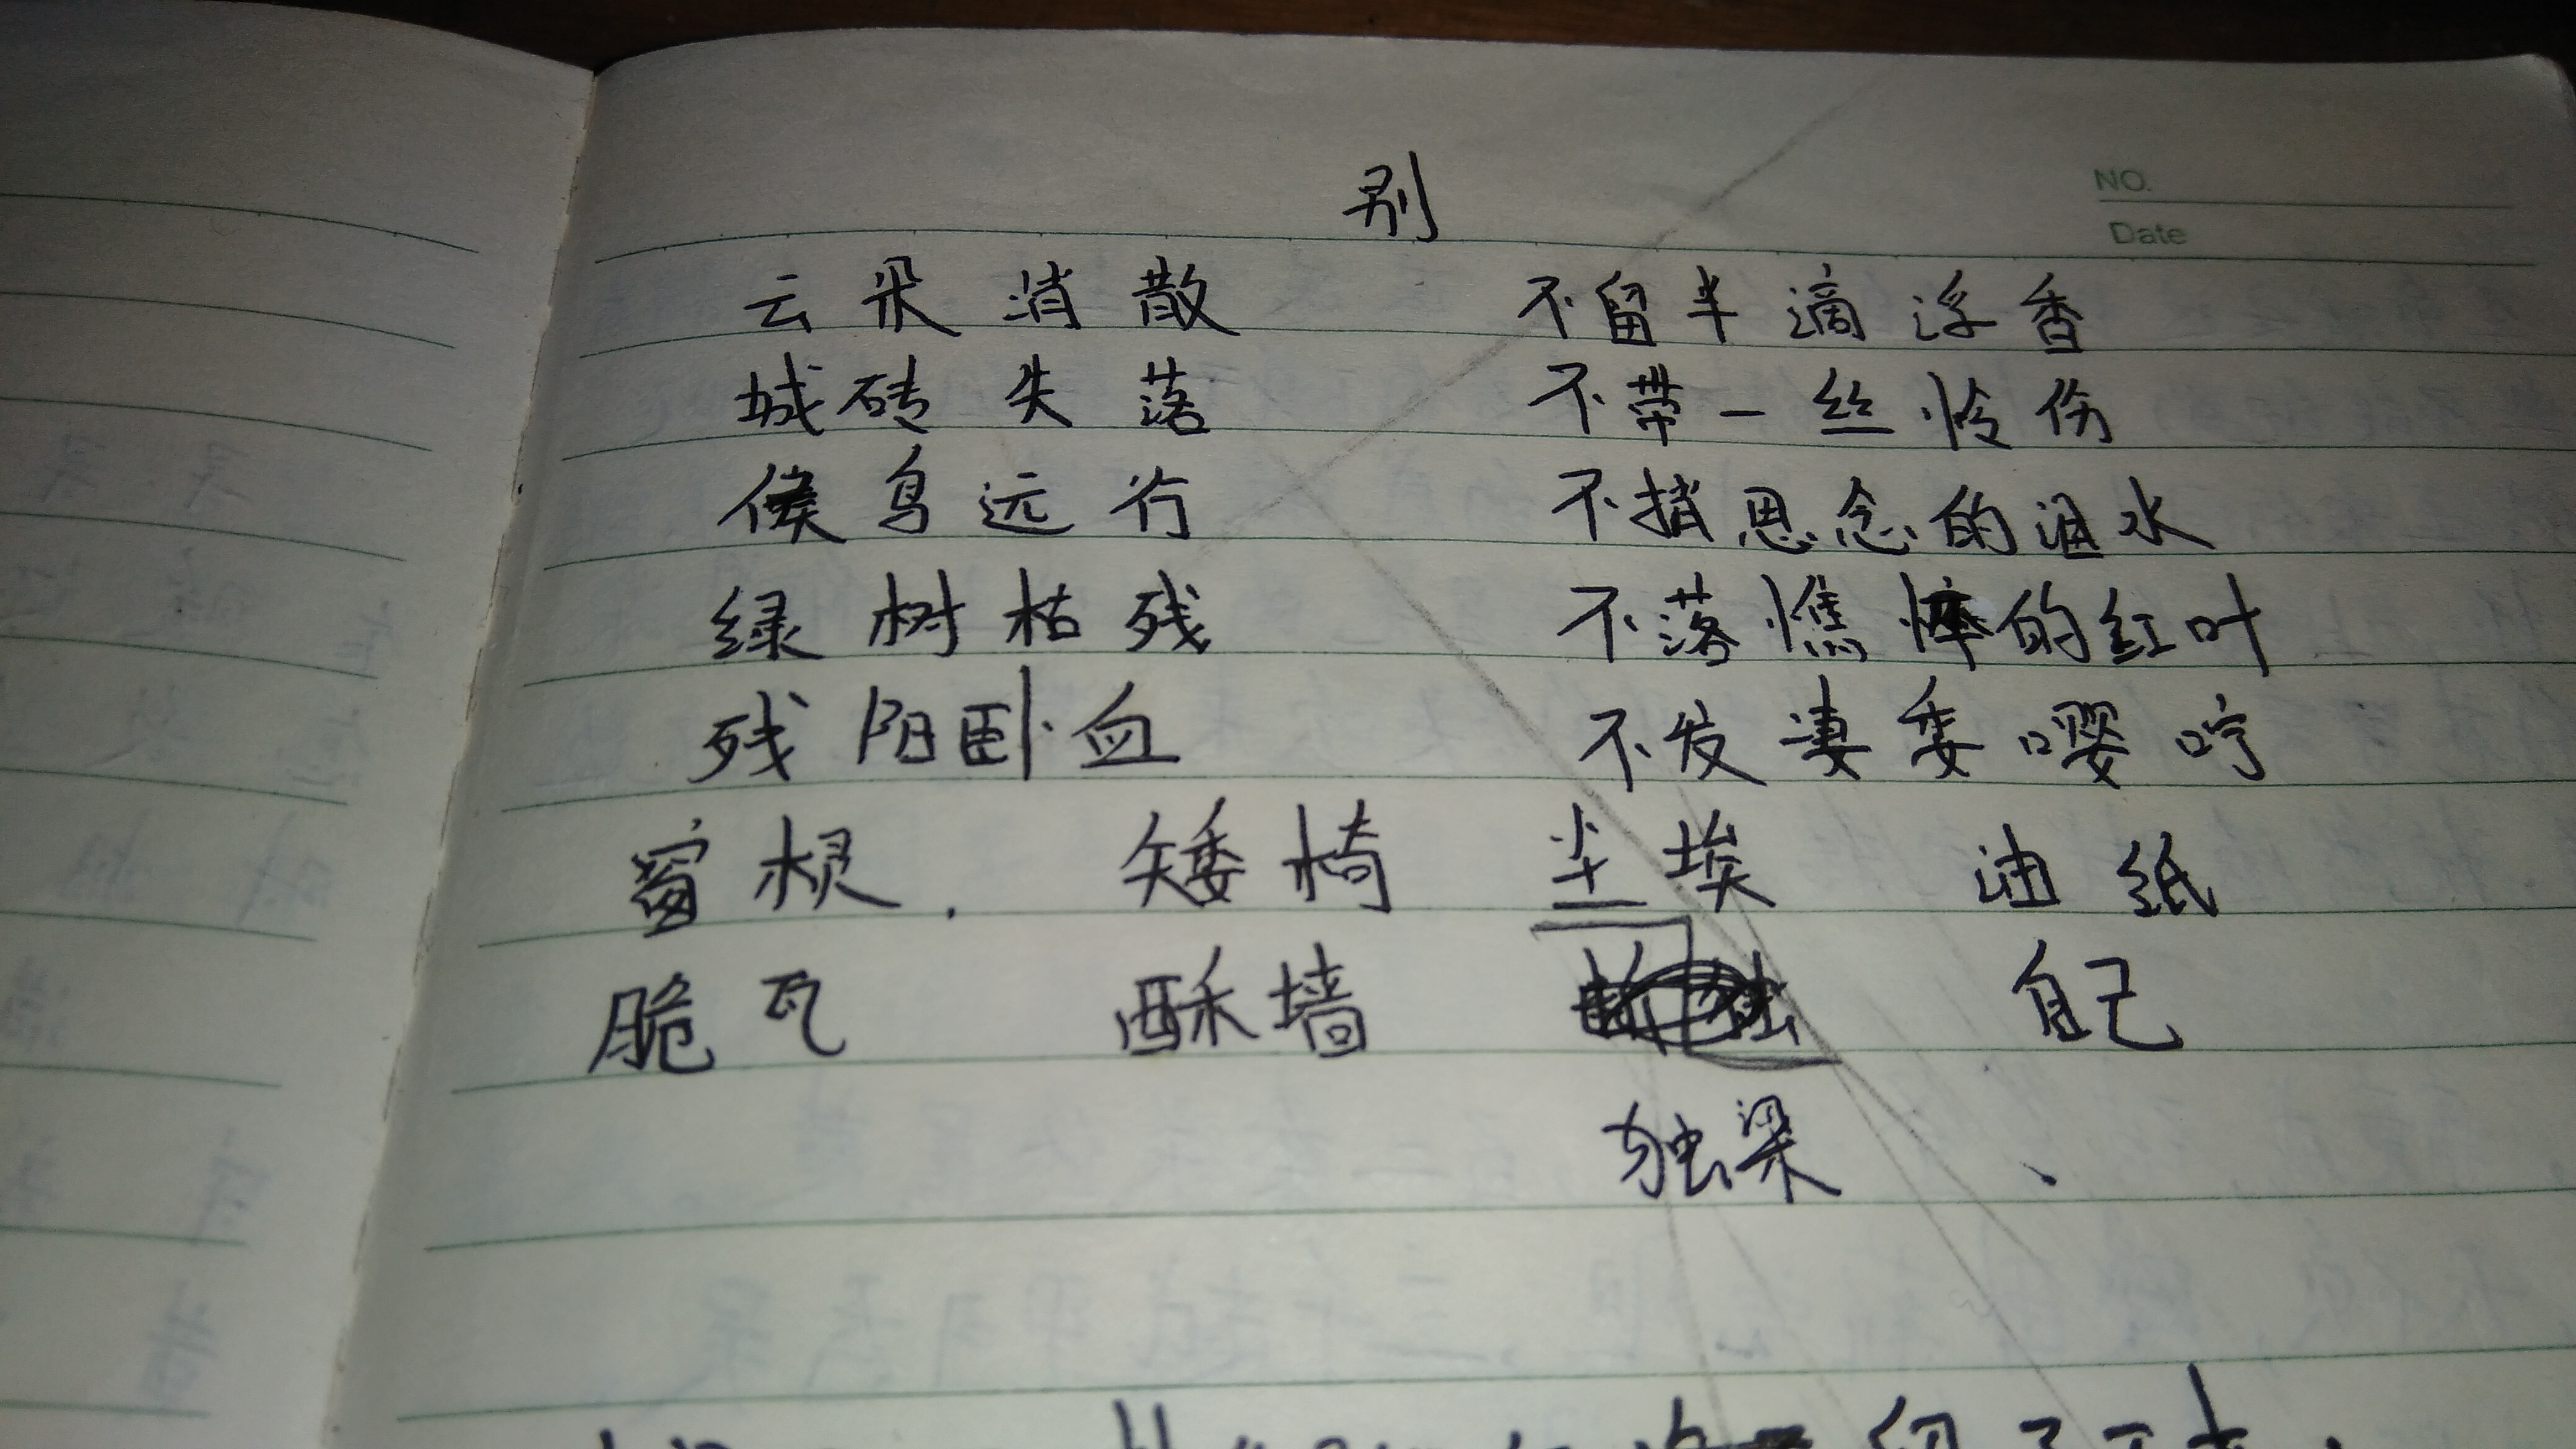 NO.
Date
别
云朵消散 不留半滴浮香
城砖失落 不带一丝怜伤
候鸟远行 不捎思念的泪水
绿树枯残 不落憔悴的红叶
残阳卧血 不发凄委嘤咛
窗棂. 矮椅 尘埃 油纸
脆瓦 酥墙 自己
独梁 、